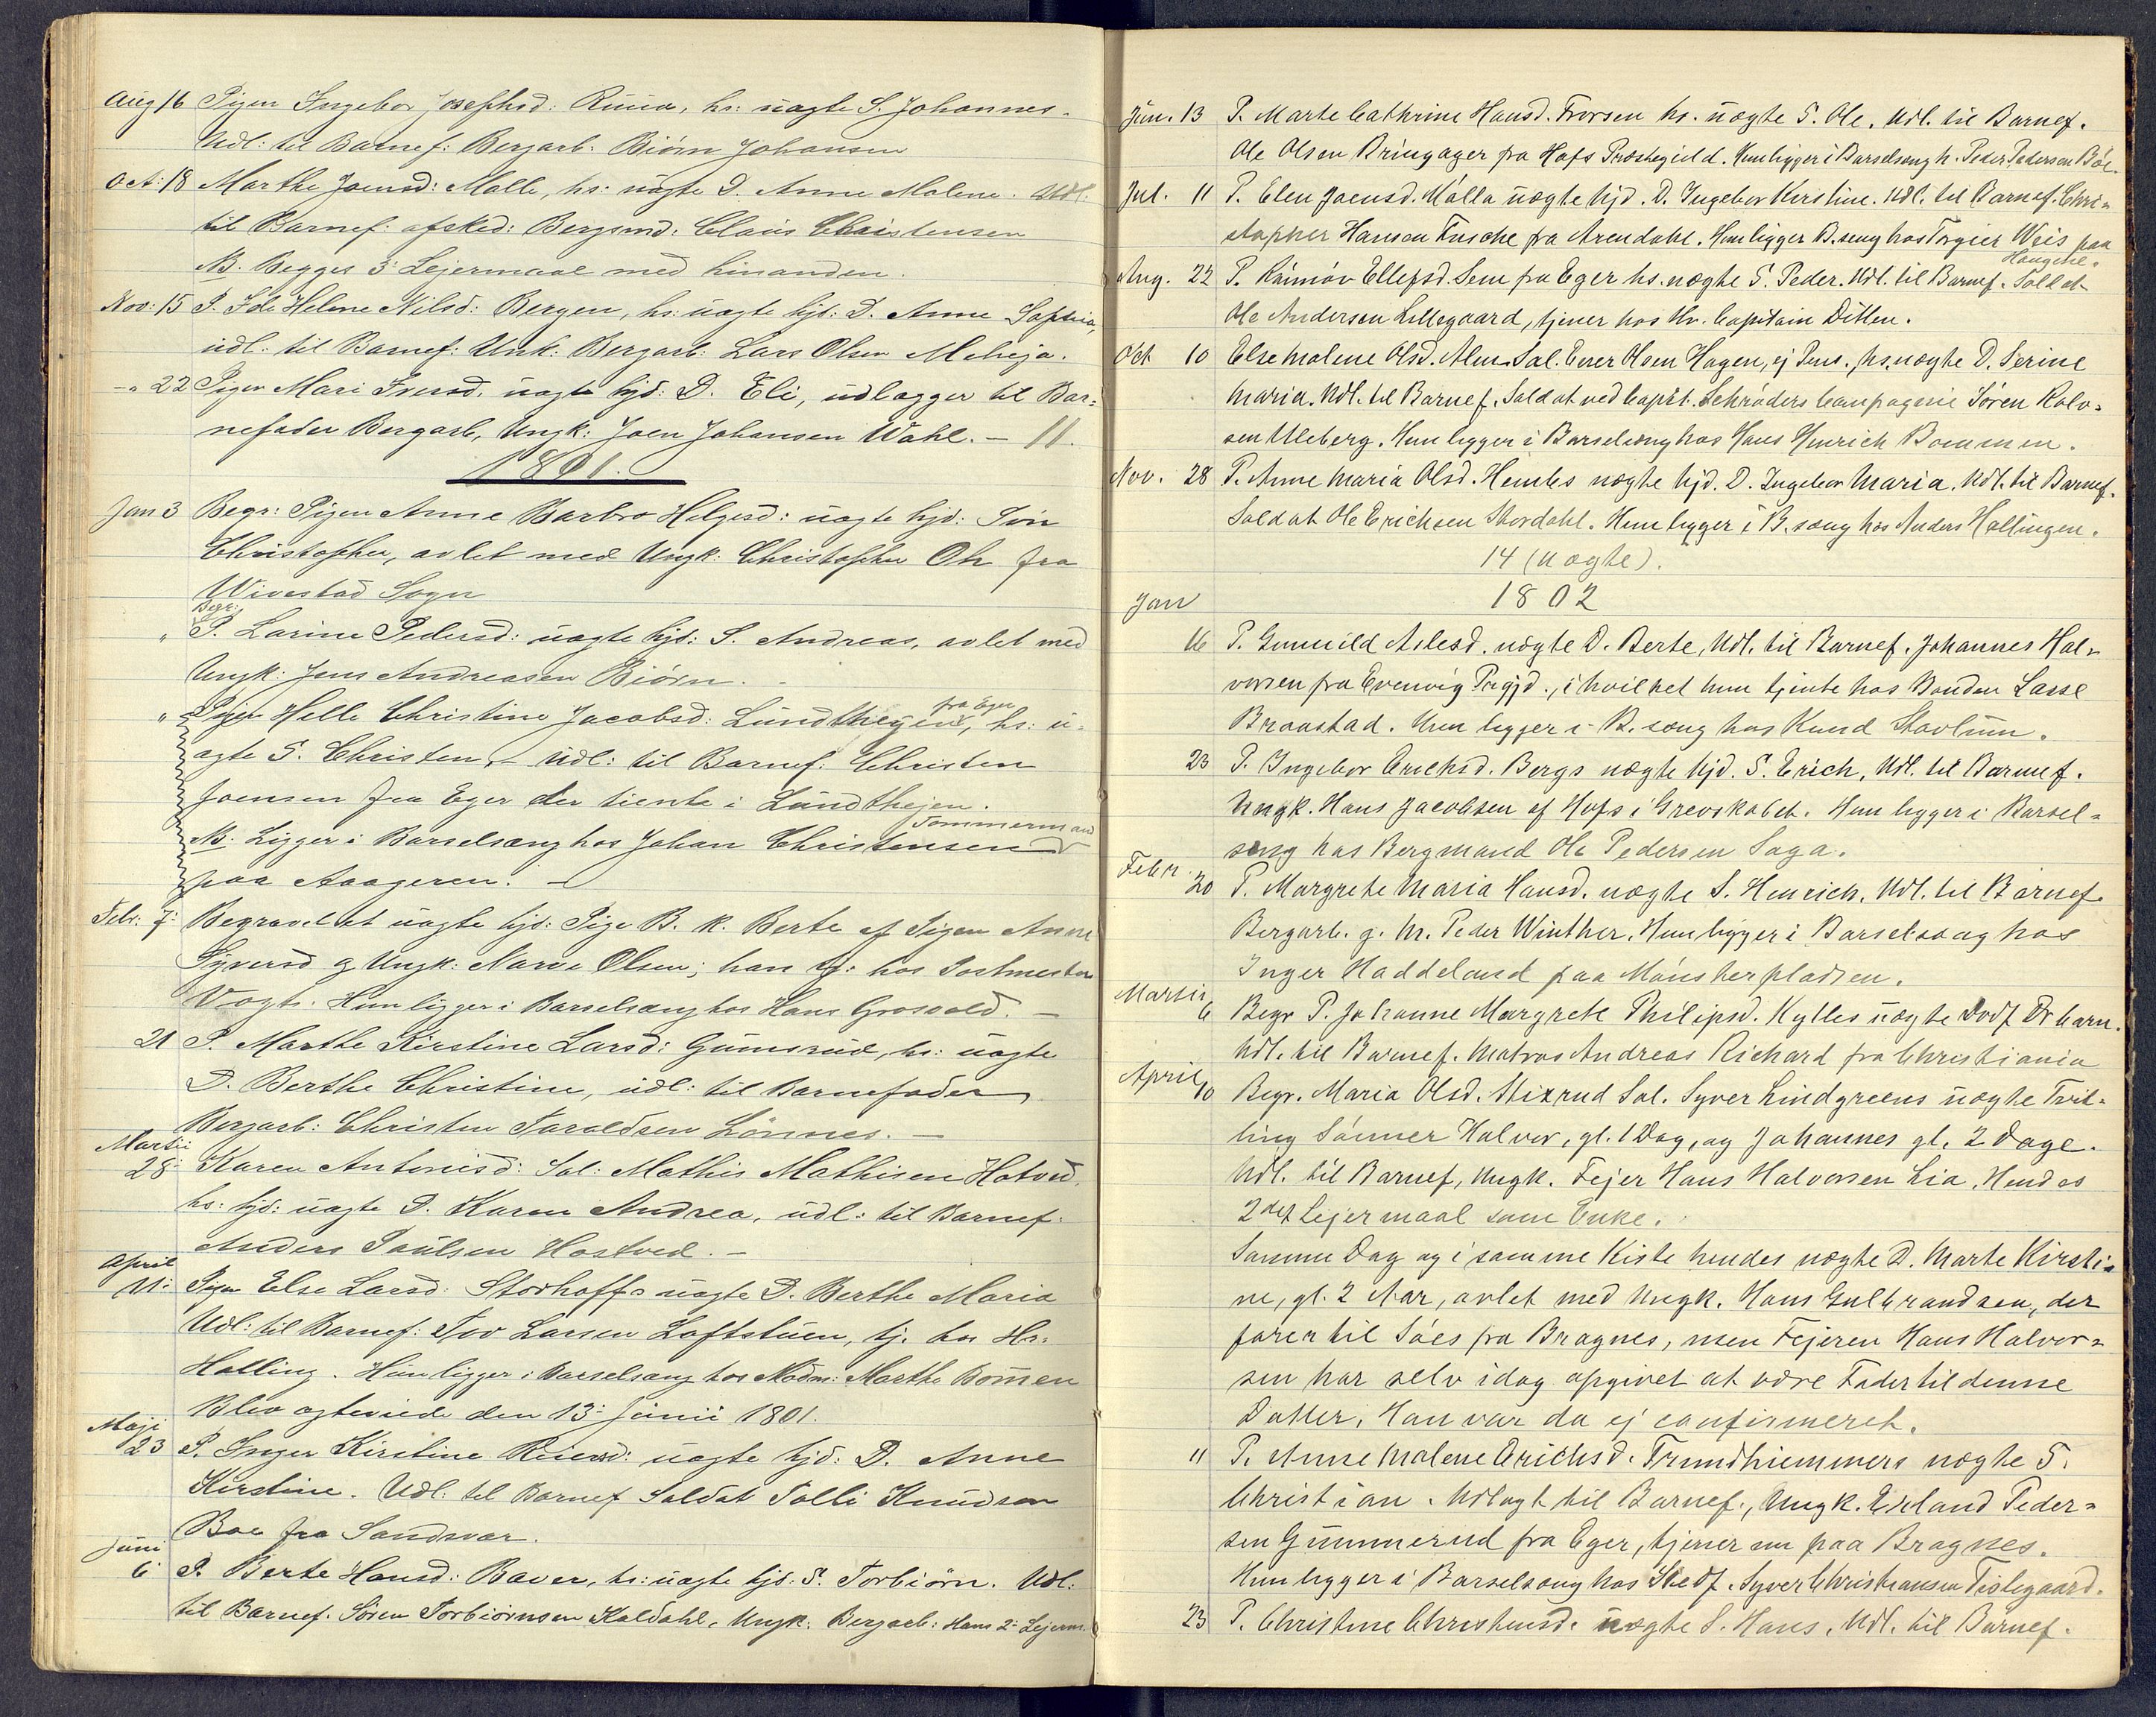 Aug 16 Pigen Ingebor Josephsd: Ruua, hs: uægte S. Johannes.
Udl: til Barnef: Bergarb: Biörn Johansen
Oct: 18 Marthe Joensd: Malle, hs: uægte D. Anne Malene. Udl:
til Barnef: afsked: Bergsmd: Claus Christensen
NB. Begges 3: Lejermaal med hinanden.
Nov: 15 P. Ide Helene Nilsd: Bergen, hs: uægte hjd: D. Anne Sophia,
udl: til Barnef: Unk: Bergarb: Lars Olsen Meheja.
-" 22 Pigen Mari Iversd. uægte hjd: D. Eli, udlægger til Bar-
nefader Bergarb, Ungk: Joen Johansen Wahl. - 11.
1801.
Jan 3 Begr: Pigen Anne Barbro Helgesd: uægte hjd: Sön
Christopher, avlet med Ungk: Christopher Ols fra
Wivestad Sogn
Begr:
" P. Larine Pedersd: uægte hjd: S. Andreas, avlet med
Ungk: Jens Andreasen Biörn.
fra Eger
" Pigen Helle Christine Jacobsd: Lundthejen, hs: u-
ægte S. Christen, Udl: til Barnef: Christen
Joensen fra Eger der tiente i Lundthejen.
Tommermand
NB: Ligger i Barselsæng hos Johan Christensen
paa Aaageren.
Febr: 7: Begravel et uægte hjd: Pige B. k. Berte af Pigen Anne
Syversd og Ungk: Narve Olsen; han tj: hos Postmester
Vogt. Hun ligger i Barselsæng hos Hans Grosvold. -
21 P. Marthe Kirstine Larsd: Gumsrud, hs: uægte
D. Berthe Christine, udl: til Barnefader
Bergarb: Christen Taraldsen Lönnes. -
Martii
28: Karen Antonisd: Sal: Mathis Mathisen Hotved,
hs: hjd: uægte D. Karen Andrea, udl: til Barnef:
Anders Paulsen Hostved. -
April
11: Pigen Else Larsd: Storhoffs uægte D. Berthe Maria
Udl: til Barnef: Tov Larsen Loftstuen, tj. hos Hr:
Halling. Hun ligger i Barselsæng hos Madm: Marthe Bommen
Blev ægteviede den 13: Junii 1801.
Maji
23 P. Inger Kirstine Reiersd: uægte hjd: D. Anne
Kirstine. Udl. til Barnef Soldat Tolli Knudsen
Boe fra Sandsvær.
Juni
6 P. Berte Hansd: Baver, hs: uægte hjd: S. Torbiörn. Udl:
til Barnef. Sören Torbiörnsen Kaldahl, Ungk: Bergarb: Hans 2: Lejerm.
Jun. 13 P. Marte Cathrine Hansd. Frorsen hs. uægte S. Ole. Udl. til Barnef.
Ole Olsen Bringager fra Hofs Præstegield. Hun ligger i Barselseng h. Peder Pedersen Böe.
Jul. 11 P. Elen Joensd. Malla uægte hjd. D. Ingebor Kirstine. Udl. til Barnef. Chri-
stopher Hansen Fusche fra Arendahl. Hun ligger B.seng hos Torgier Weis paa
Haugene.
Aug. 22 P. Raimöv Ellefsd. Sem fra Eger hs. uægte S. Peder. Udl. til Barnef. Soldat
Ole Andersen Lillegaard, tjener hos Hr. Capitain Ditten.
Oct 10 Else Malene Olsd. Alm. Sal. Ener Hoen Hagen, ej Pens., hs. uægte D. Serine
Maria. Udl. til Barnef. Soldat ved Capit. Schröders Compagnie Sören Rolv-
sen Uleberg. Hun ligger i Barselseng hos Hans Henrich Bommen.
Nov. 28 P. Anne Maria Olsd. Hembs uægte hjd. D. Ingebor Maria. Udl. til Barnef.
Soldat Ole Erichsen Stordahl. Hun ligger i B.sæng hos Anders Hallingen.
14 (uægte).
1802
Jan
16 P. Gunnild Aslesd. uægte D. Berte, Udl. til Barnef. Johannes Hal-
vorsen fra Evenvig Prgjd., i hvilket hun tjente hos Bonden Lasse
Braastad. Hun ligger i B.sæng hos Knud Stavlum.
23 P. Ingebor Erichsd. Bergs uægte hjd. S. Erich, Udl. til Barnef.
Ungk. Hans Jacobsen af Hofs i Grevskabet. Hun ligger i Barsel-
seng hos Bergmand Ole Pedersen Saga.
Febr
20 P. Margrethe Maria Hansd. uægte S. Henrich. Udl. til Barnef.
Bergarb. g. M. Peder Winther. Hun ligger i Barselsæng hos
Inger Haddeland paa Mönsterpladsen.
Martii
6 Begr P. Johanne Margrete Philipsd. Kylles uægte Dödf Drbarn.
Udl. til Barnef. Matros Andreas Richard fra Christiania
April
10 Begr. Maria Olsd. Stixrud Sal. Syver Lindgreens uægte Tvil-
ling Sönner Halvor, gl. 1 Dag, og Johannes gl. 2 Dage.
Udl. til Barnef, Ungk. Fejer Hans Halvorsen Lia. Hendes
2det Lejermaal som Enke.
Samme Dag og i samme Kiste hendes uægte D. Marte Kirsti-
ne, gl. 2 Aar, avlet med Ungk. Hans Gulbrandsen, der
farer til Söes fra Bragnes, men Fejeren Hans Halvor-
sen har selv idag opgivet at være Fader til denne
Datter. Han var da ej confirmeret.
11 P. Anne Malene Erichsd. Trundhiemmers uægte S.
Christian. Udlagt til Barnef., Ungk. Erland Peder-
sen Gunnerud fra Eger, tjener nu paa Bragnes.
Hun ligger i Barselsæng hos Skedf. Syver Christiansen Tislegaard.
23 P. Christine Christensd. uægte S. Hans. Udl. til Barnef.